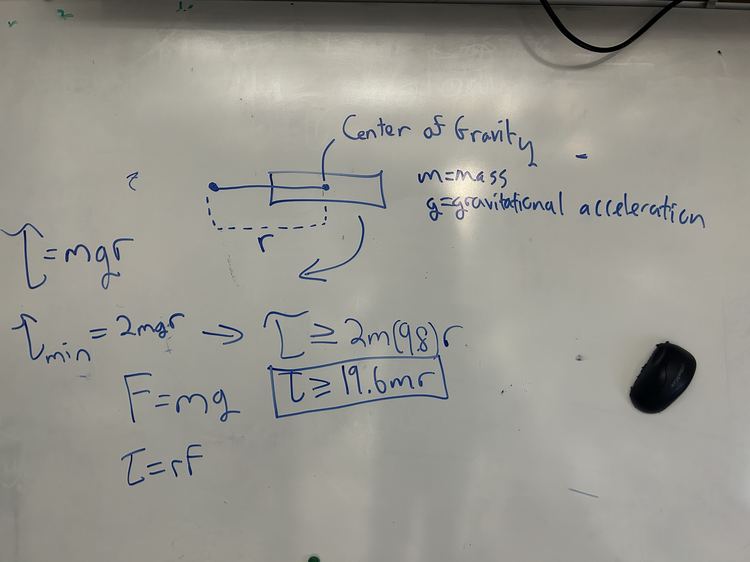 Center of Gravity
m=mass
g=gravitational acceleration
r
τ=mgr
τmin=2mgr → τ≥2m(9.8)r
F=mg
τ≥19.6mr
τ=rF